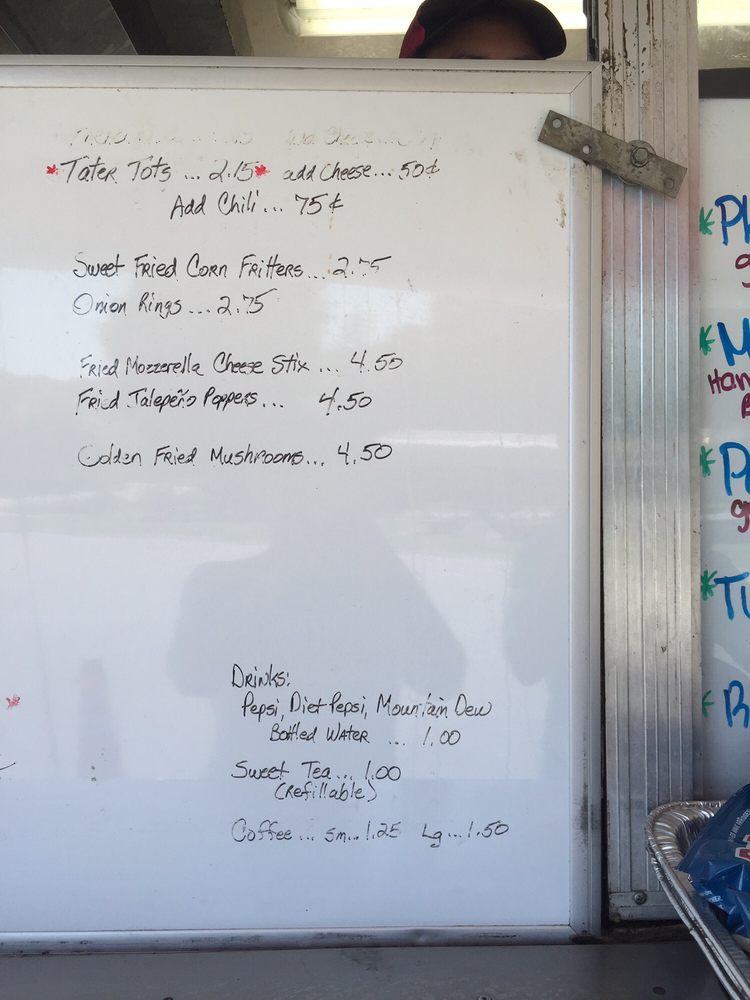 *Tater Tots ... 2.15* add Cheese... 50¢
Add Chili... 75¢
Sweet Fried Corn Fritters... 2.75
Onion Rings ... 2.75
Fried Mozzerella Cheese Stix ... 4.50
Fried Jalepeño Poppers... 4.50
Golden Fried Mushrooms... 4.50
Drinks:
Pepsi, Diet Pepsi, Mountain Dew
Bottled Water ... 1.00
Sweet Tea... 1.00
(Refillable)
Coffee... Sm... 1.25 Lg... 1.50